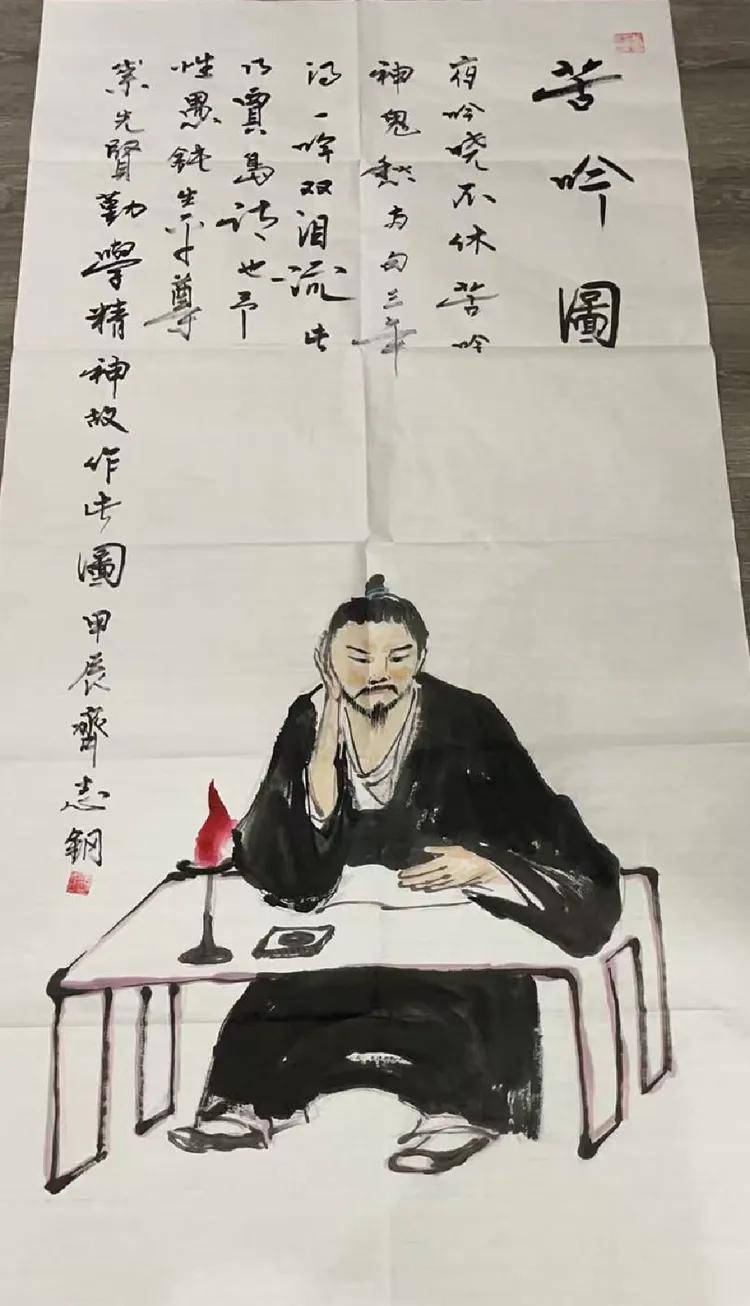 苦吟圖
夜吟晓不休苦吟
神鬼愁两句三年
得一吟双泪流此
乃賈島诗也予
性愚鈍生平尊
崇先賢勤學精神故作此圖甲辰齊志鋼